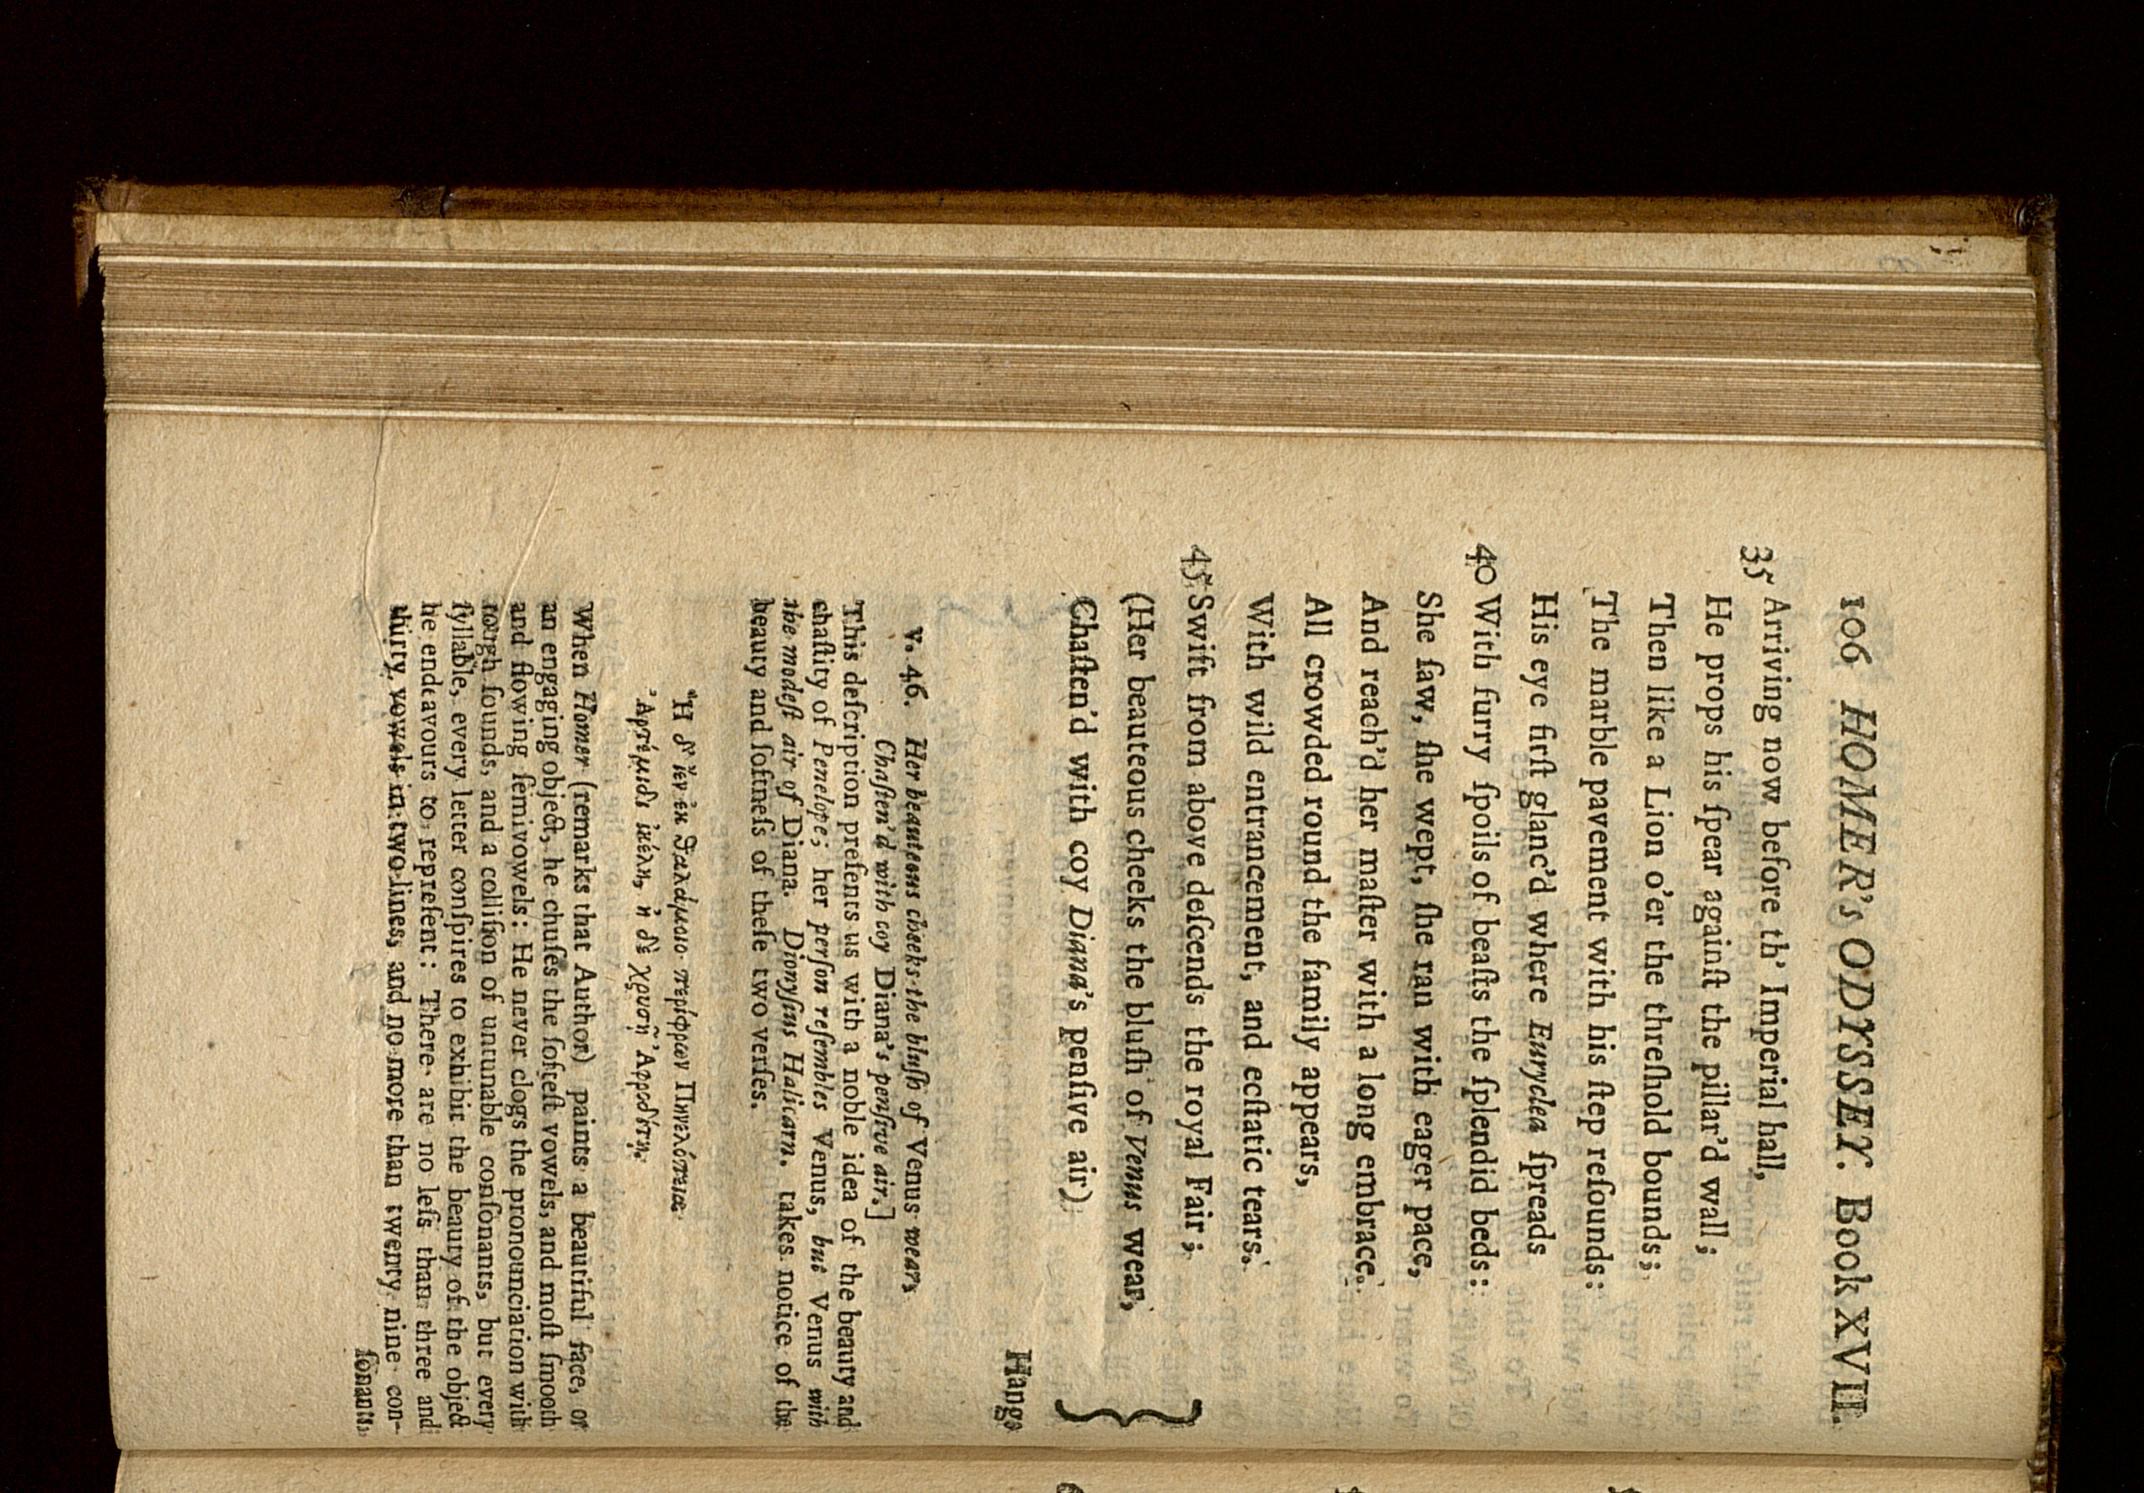 106 HOMER's ODYSSEY. Book XVII.
35 Arriving now before th' Imperial hall,
He props his ſpear againſt the pillar'd wall;
Then like a Lion o'er the threſhold bounds;
The marble pavement with his ſtep reſounds:
His eye firſt glanc'd where Euryclea ſpreads
40 With furry ſpoils of beaſts the ſplendid beds:
She ſaw, ſhe wept, ſhe ran with eager pace,
And reach'd her maſter with a long embrace.
All crowded round the family appears,
With wild entrancement, and ecſtatic tears.
45 Swift from above deſcends the royal Fair;
(Her beauteous cheeks the bluſh of Venus wear,
Chaſten'd with coy Diana's penſive air)
Hangs
v. 46. Her beauteous cheeks the bluſh of Venus wear,
Chaſten'd with coy Diana's penſive air.]
This deſcription preſents us with a noble idea of the beauty and
chaſtity of Penelope; her perſon reſembles Venus, but Venus with
the modeſt air of Diana. Dionyſius Halicarn. takes notice of the
beauty and ſoftneſs of theſe two verſes.
Ἡ δ' ἴεν ἐκ θαλάμοιο περίφρων Πηνελόπεια
Ἀρτέμιδι ἰκέλη, ἠ δὲ χρυσῇ Ἀφροδίτῃ.
When Homer (remarks that Author) paints a beautiful face, or
an engaging object, he chuſes the ſofteſt vowels, and moſt ſmooth
and flowing ſemivowels: He never clogs the pronounciation with
rough ſounds, and a colliſion of untunable conſonants, but every
ſyllable, every letter conſpires to exhibit the beauty of the object
he endeavours to repreſent: There are no leſs than three and
thirty vowels in two lines, and no more than twenty nine con-
ſonants,